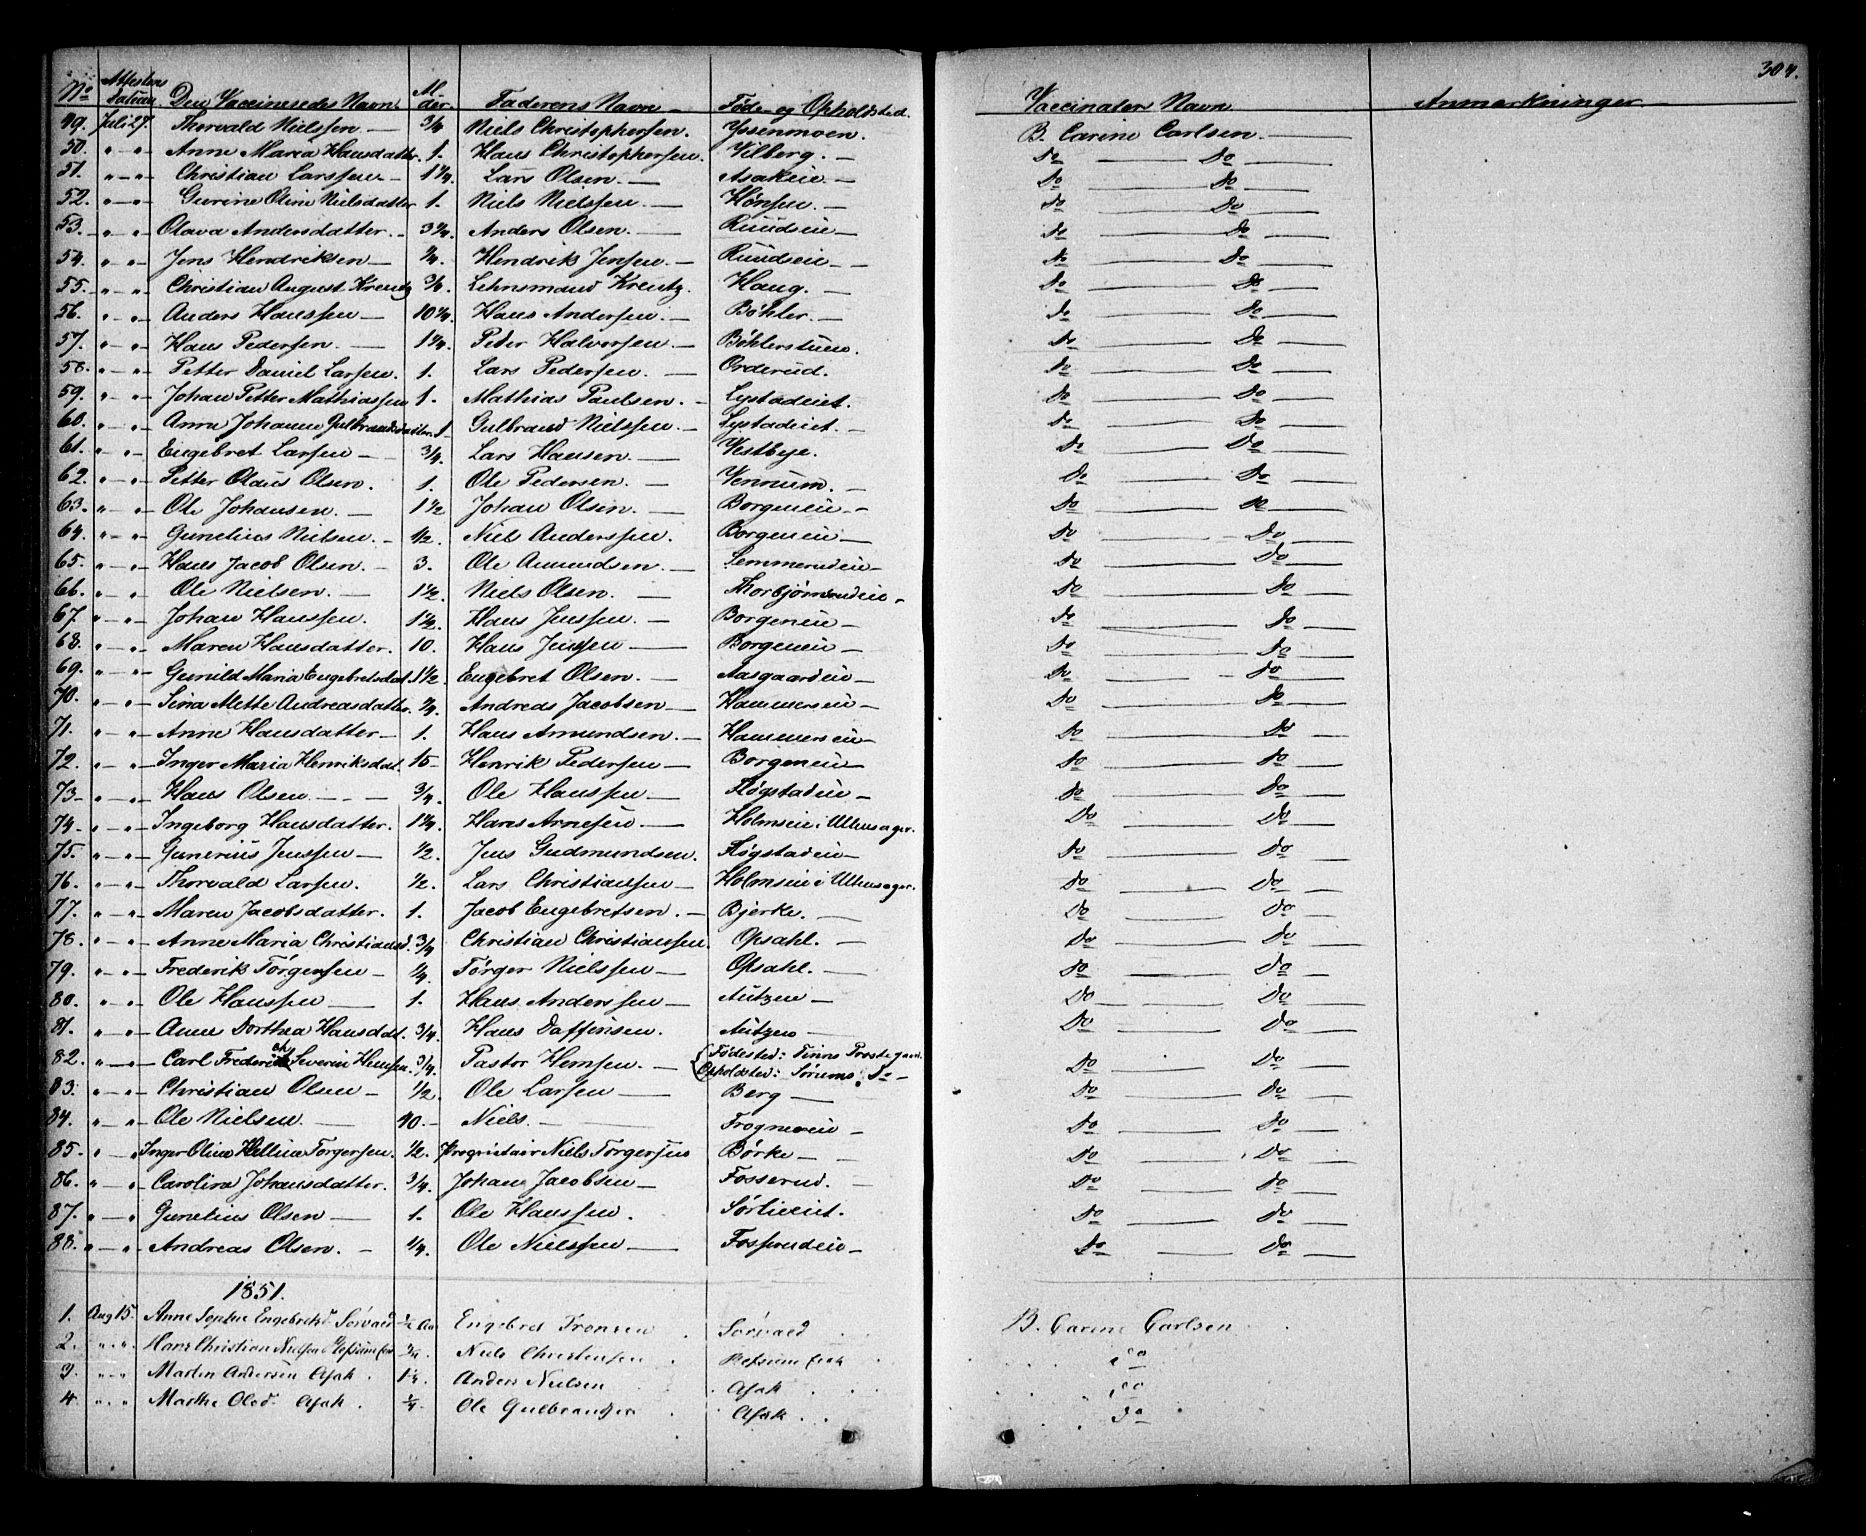 304.
No Attestens Datum Den Vaccineredes Navn. Alder. Faderens Navn Føde- og Opholdsted. Vaccinators Navn Anmærkninger
49. Juli 27. Thorvald Nielssen 3/4 Niels Christophersen. Yssenmoen. B. Carine Carlsen.
50. " " Anne Maria Hansdatter. 1. Hans Christophersen. Vilberg. Do Do
51. " " Christian Larssen 1 1/4 Lars Olsen. Asakeie Do Do
52. " " Gurine Oline Nielsdatter 1. Niels Nielssen. Hønsen. Do Do
53. " " Olava Andersdatter. 3 3/4. Anders Olsen. Ruudseie Do Do
54. " " Jens Hendriksen Hendrik Jensen Ruudseie Do Do
55. " " Christian August Kreutz Lehnsmand Kreutz. Haug. Do Do
56. " " Anders Hanssen Hans Andersen Bøhler. Do Do
57. " " Hans Pedersen. 1 1/4. Peder Halvorsen. Bøhlerstuen. Do Do
58. " " Petter Daniel Larsen. 1. Lars Pedersen. Orderud. Do Do
59. " " Johan Petter Mathiassen 1. Mathias Paulsen. Lystadeiet. Do Do
60. " " Anne Johanne Gulbrandsdatter. 1 Gulbrand Nielssen. Lystadeiet. Do Do
61. " " Engebret Larsen 3/4. Lars Hansen. Vestbye. Do Do
62. " " Petter Olaus Olsen. 1. Ole Pedersen. Do Do
63. " " Ole Johansen. 1 1/2 Johan Olsen. Borgeneie Do Do
64. " " Gunelius Nielsen. 1/2. Niels Anderssen. Borgeneie Do Do
65. " " Hans Jacob Olsen. 3. Ole Amundsen. Lemmerudeie Do Do
66. " " Ole Nielsen. 1 1/2. Niels Olsen. Thorbjørnrudeie Do Do
67. " " Johan Hanssen. 1 1/2. Hans Jenssen Borgeneie Do Do
68. " " Maren Hansdatter. 10. Hans Jenssen Borgeneie Do Do
69. " " Gunild Maria Engebretsdat. 1 1/2. Engebret Olsen. Aasgaardeie Do Do
70. " " Sina Mette Andreasdatter. Andreas Jacobsen Hammerseie Do Do
71. " " Anne Hansdatter 1. Hans Amundsen. Hammerseie Do Do
72. " " Inger Maria Henriksdat. 15 Henrik Pedersen Borgeneie Do Do
73 " " Hans Olsen 3/4. Ole Hanssen Fløgstadeie Do Do
74 " " Ingeborg Hansdatter. 1 1/4. Hans Arnesen Holmseie i Ullensager. Do Do
75. " " Gunerius Jenssen 1/2. Jens Gudmundsen. Fløgstadeie Do Do
76. " " Thorvald Larsen. 1/2. Lars Christiansen Holmseie i Ullensager. Do Do
77. " " Maren Jacobsdatter. 1. Jacob Engebretsen. Bjerke. Do Do
78. " " Anne Maria Christiansd. 3/4 Christian Christianssen. Opsahl. Do Do
79. " " Frederik Torgersen 1/4. Torger Nielssen Opsahl. Do Do
80. " " Ole Hanssen 1. Hans Anderssen Autzen Do Do
81. " " Anne Dorthea Hansdat. 3/4. Hans Daffinsen. Autzen Do Do
82. " " Carl Frederich Severin Hemsen. 3/4. Pastor Hemsen. Fødested: Tinns Prostegaard. Do Do
Opholdsted: Sørums Do
83. " " Christian Olsen 1/2. Ole Larsen Berg Do Do
84. " " Ole Nielsen 40. Niels. Frognereie Do Do
85. " " Inger Oline Helline Torgersen. 1/2. Proprietair Niels Torgersen Børke Do Do
86. " " Carolina Johansdatter. 3/4. Johan Jacobsen Fosserud. Do Do
87. " " Gunelius Olsen 1. Ole Hanssen. Sørlieeiet. Do Do
88. " " Andreas Olsen. 1/4. Ole Nielssen Fosserudeie Do Do
1851.
1. Aug 15. Anne Sophie Engebretsd Sørvaed 1/2 Aar Engebret Tronsen Sørvaed B. Carine Carlsen
2. " " Hans Christian Nielsen Niels Christensen do
3. " " Martin Andersen Asak. 1 1/4. Anders Nielsen Asak do
4. " " Marthe Olsd. Asak. Ole Gulbrandsen Asak. do